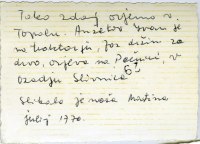 Tako zdaj orjemo v
Topolu. Anzetov Ivan je
na traktorju, jaz držim za
drvo, orjeva na Pečnici, v
ozadju Slivnica
Slikala je naša Martina
julij 1970.